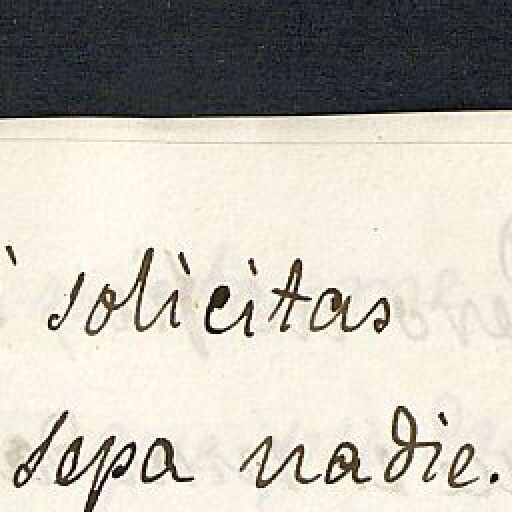 solicitas
sepa nadie.